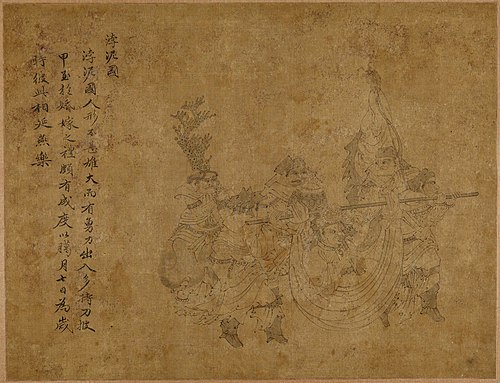 浡泥國
浡泥國人形不甚雄大而有勇力出入多持刀披
甲至於婚嫁之禮頗有威度以臘月七日為歲
時彼此相延燕樂